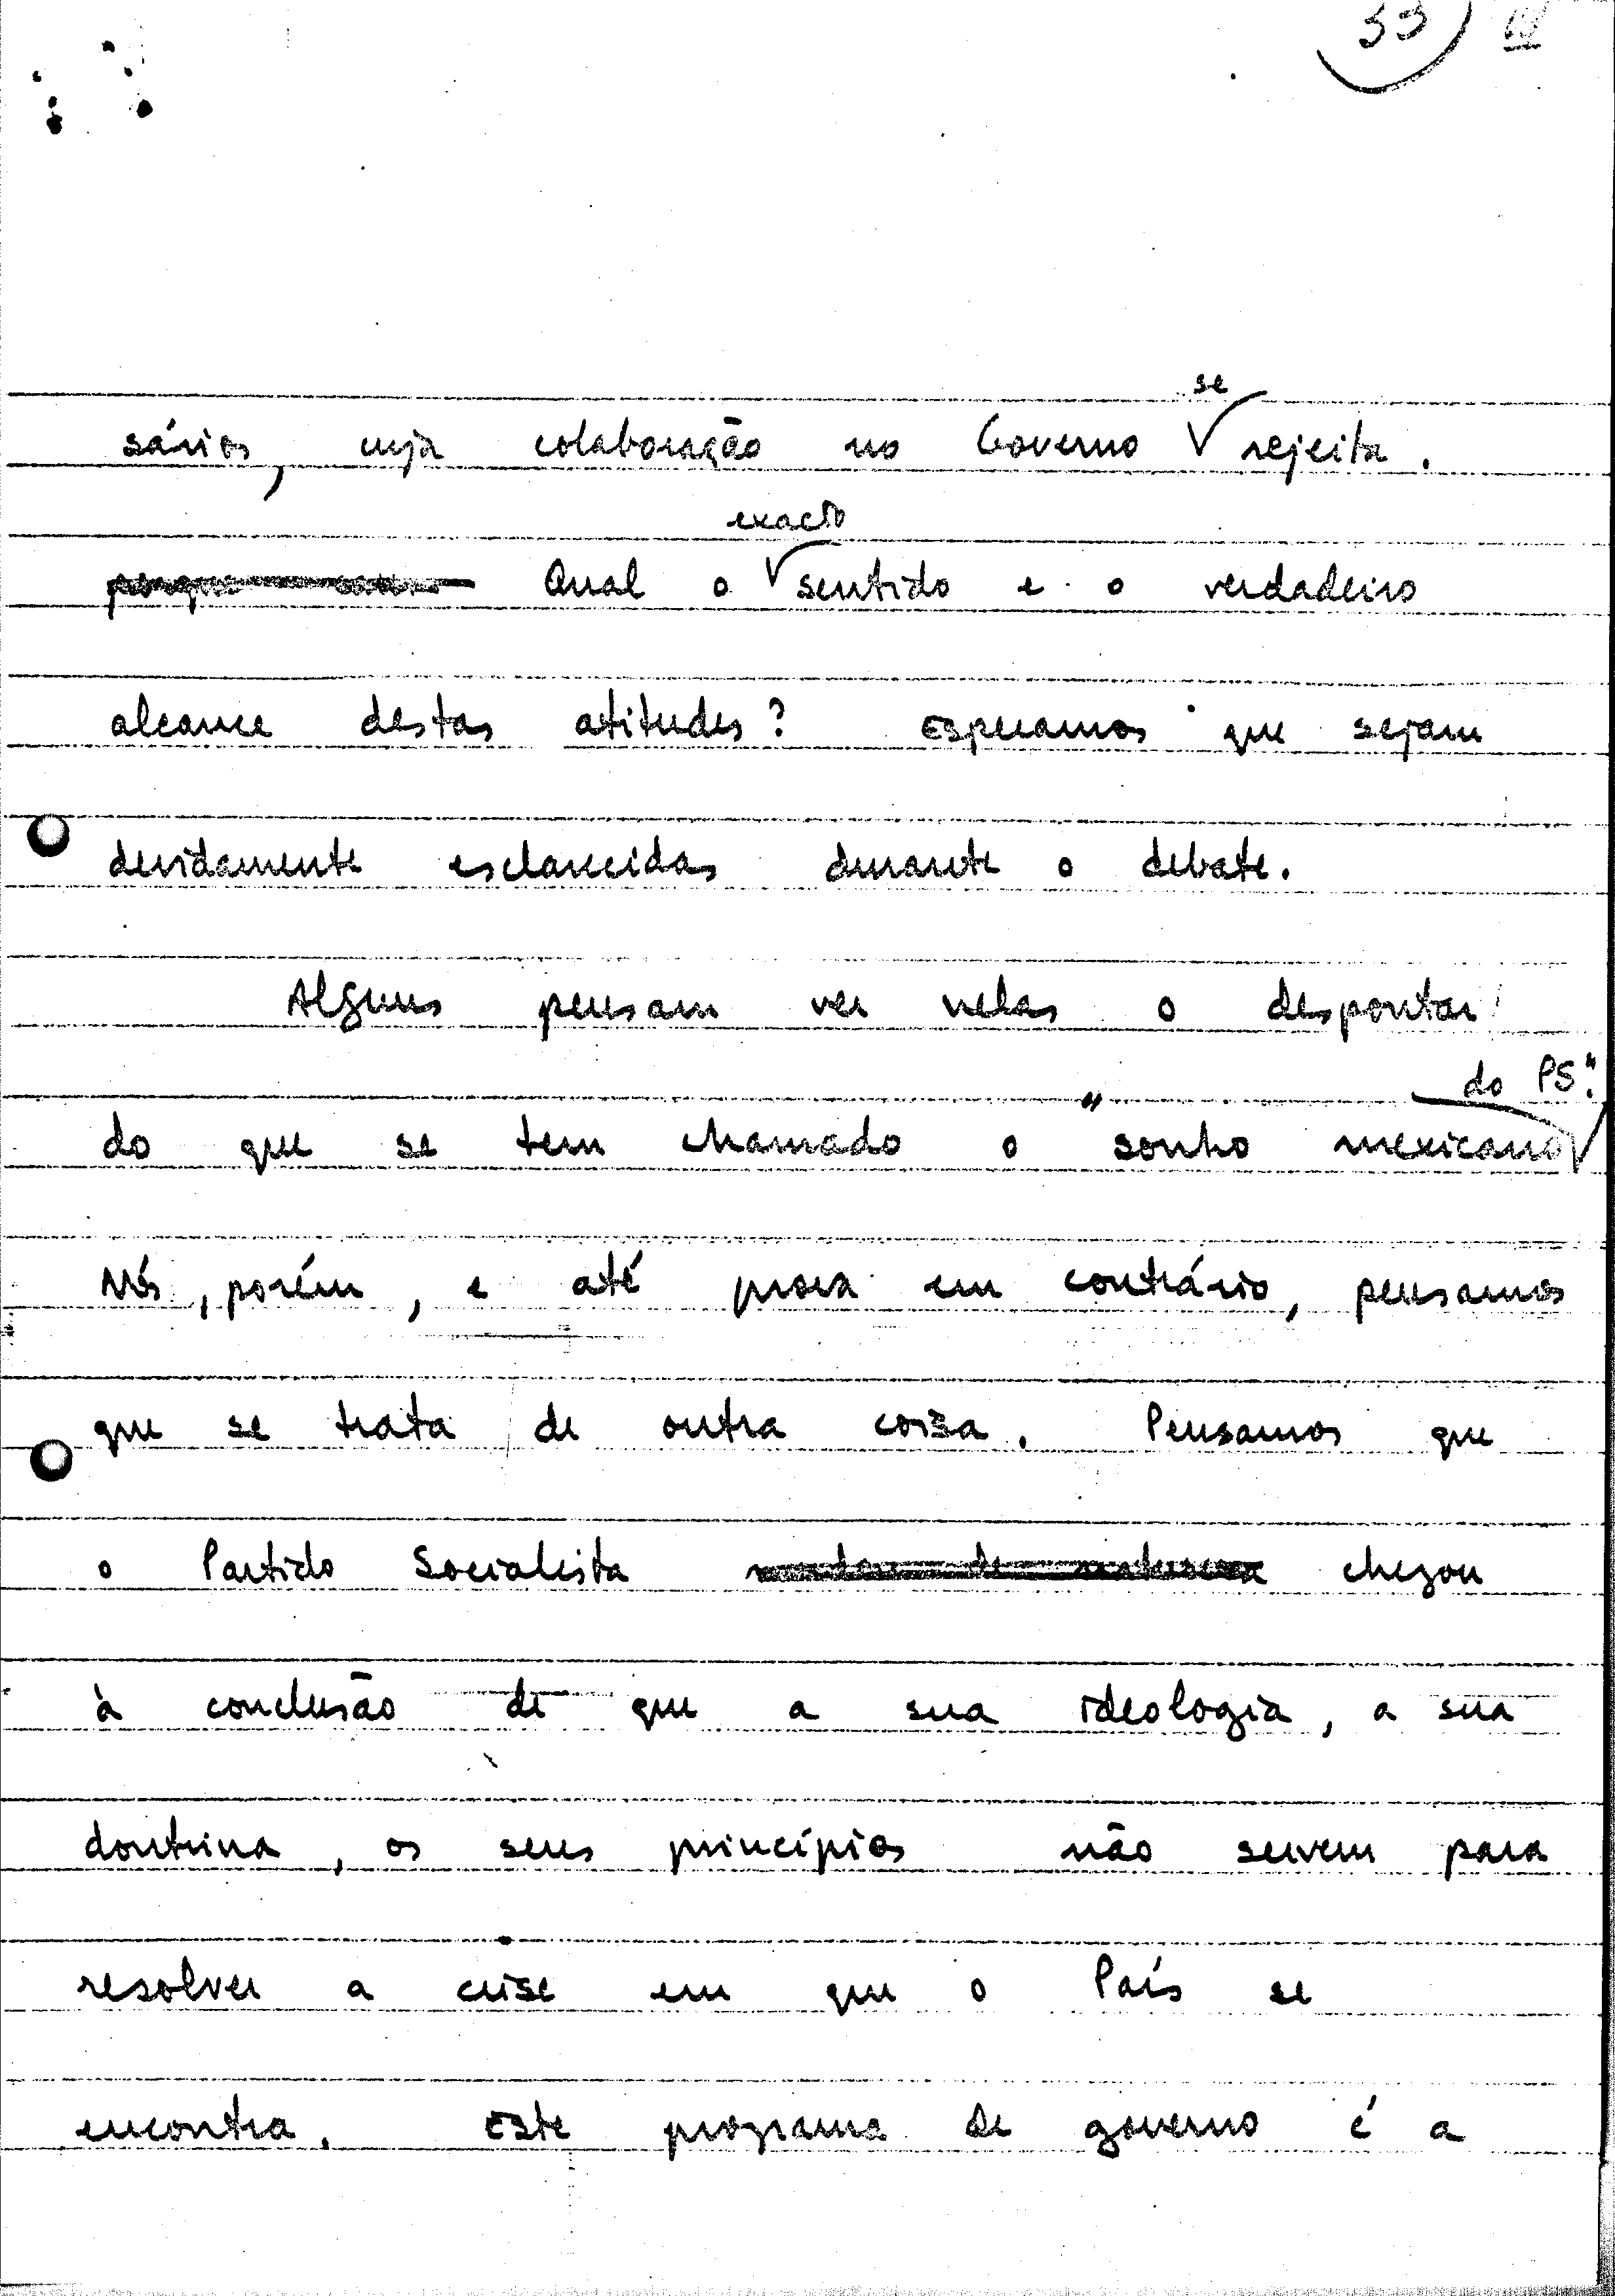 33
sários, cuja colaboração no Governo se rejeita.
Qual o exacto sentido e o verdadeiro
alcance destas atitudes? Esperamos que sejam
devidamente esclarecidas durante o debate.
Alguns pensam ver nelas o despontar
do que se tem chamado o "sonho mexicano do PS".
Nós, porém, e até prova em contrário, pensamos
que se trata de outra coisa. Pensamos que
o Partido Socialista chegou
à conclusão de que a sua ideologia, a sua
doutrina, os seus princípios não servem para
resolver a crise em que o País se
encontra. Este programa de governo é a